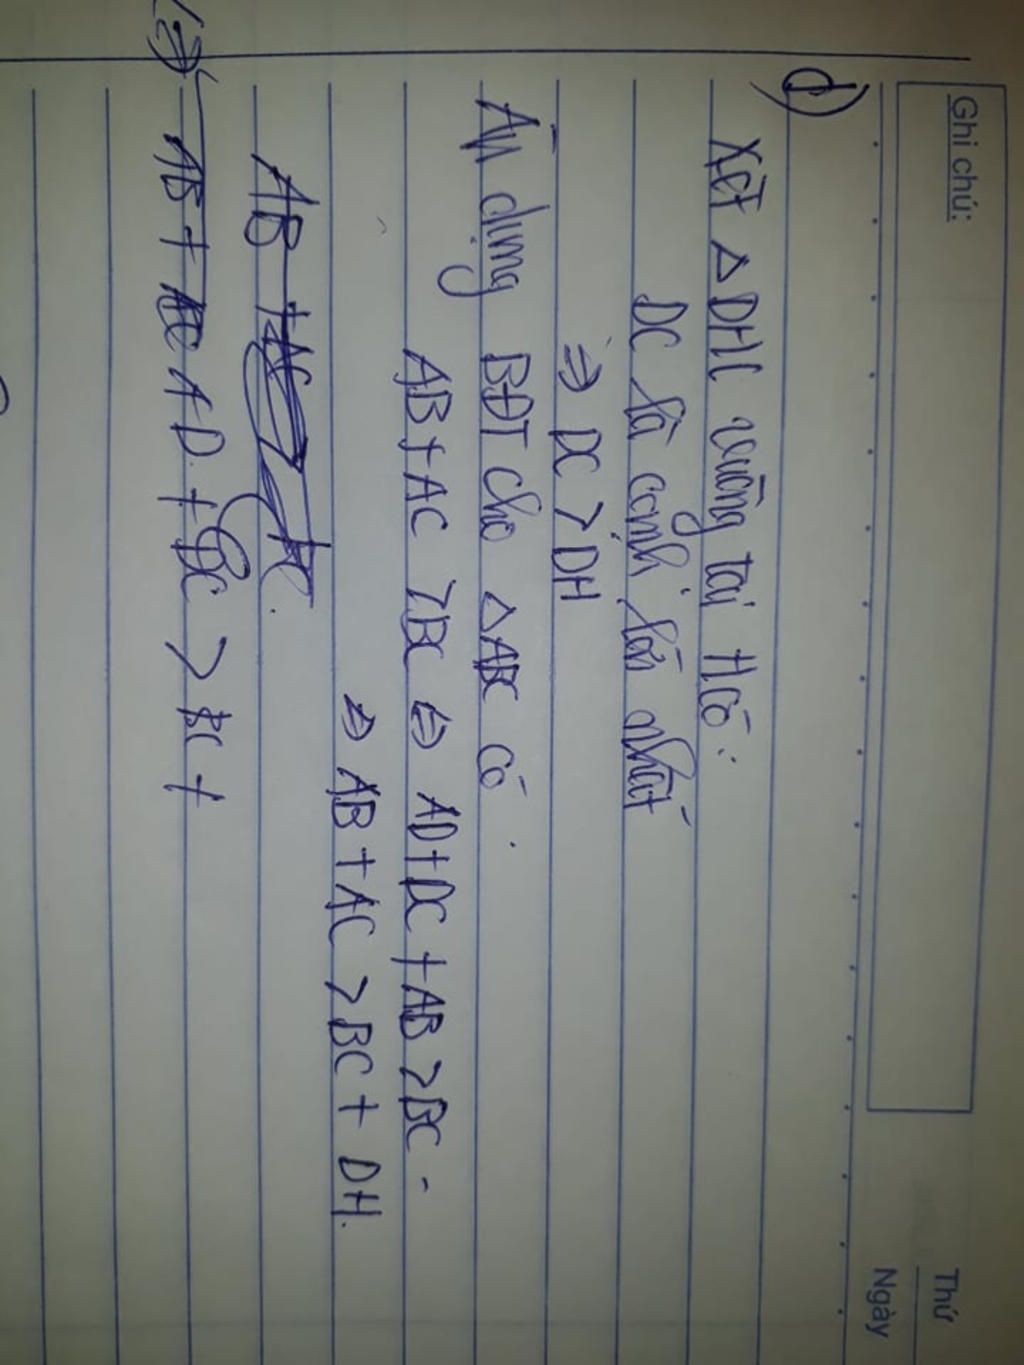 Ghi chú:
Thứ
Ngày
d)
Xét △DHC vuông tại H có:
DC là cạnh lớn nhất
⇒ DC > DH
Áp dụng BĐT cho △ABC có
AB + AC > BC ⇔ AD + DC + AB > BC -
⇒ AB + AC > BC + DH.
AB +
AB + AC AD + DC > BC +